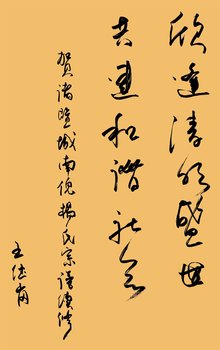 欣逢清明盛世
共建和谐社会
贺诸暨城南倪杨氏宗谱续修
王